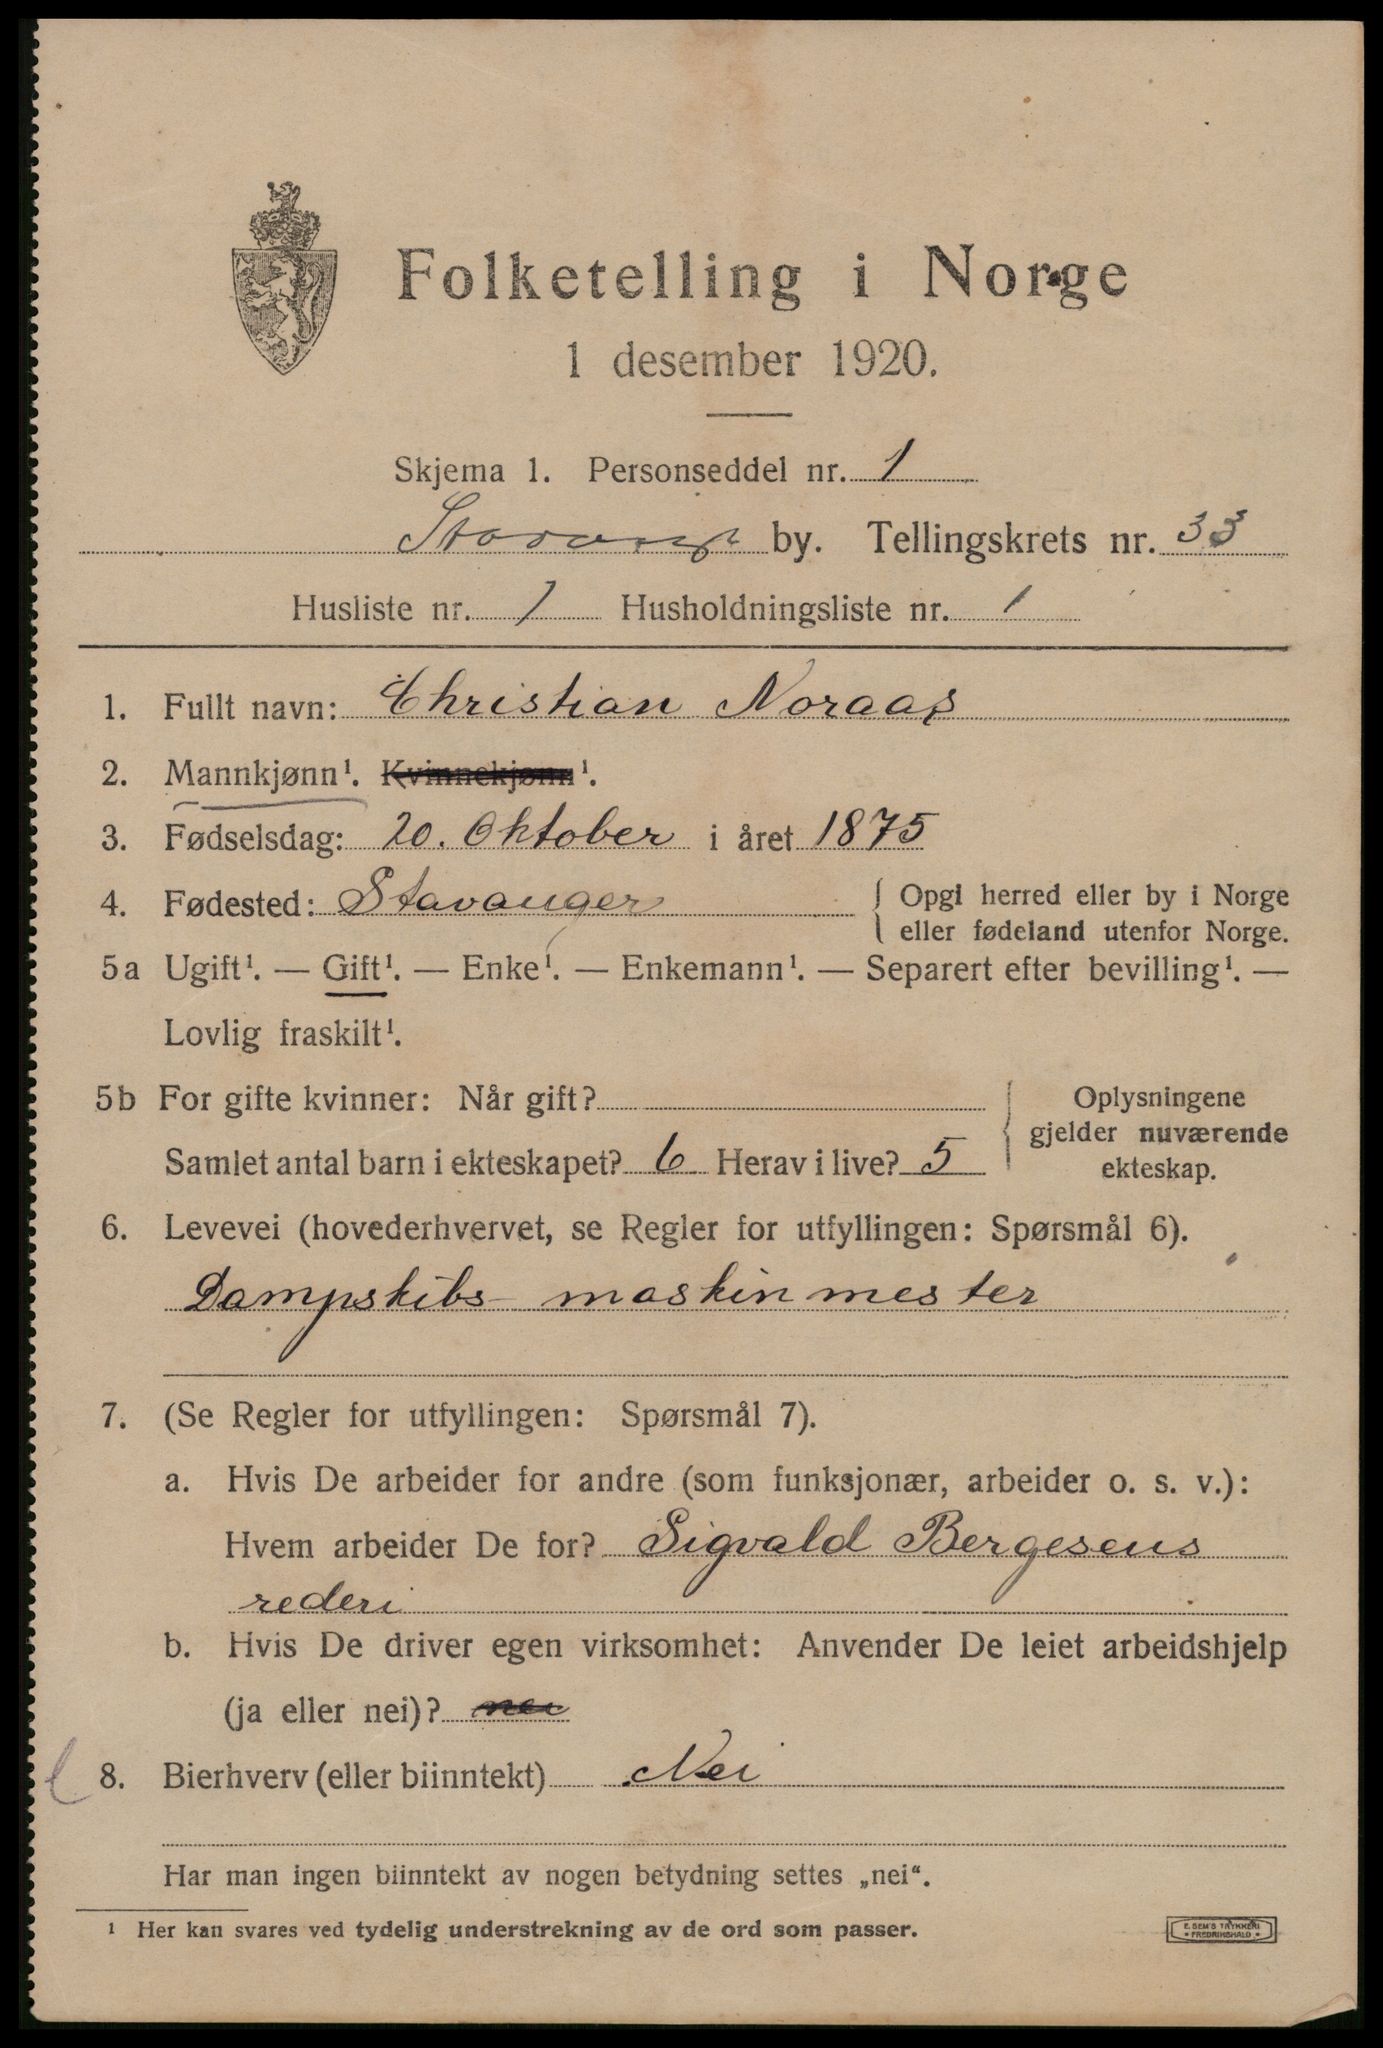 Folketelling i Norge
1 desember 1920.
Skjema 1. Personseddel nr. 1
Stavanger by. Tellingskrets nr. 33
Husliste nr. 1 Husholdningsliste nr. 1
1. Fullt navn: Christian Noraas
2. Mannkjønn¹. Kvinnekjønn¹.
3. Fødselsdag: 20. Oktober i året 1875
4. Fødested: Stavanger { Opgi herred eller by i Norge
eller fødeland utenfor Norge.
5a Ugift¹. — Gift¹. — Enke¹. — Enkemann¹. — Separert efter bevilling¹. —
Lovlig fraskilt¹.
5b For gifte kvinner: Når gift?
Samlet antal barn i ekteskapet? 6 Herav i live? 5
Oplysningene
gjelder nuværende
ekteskap.
6. Levevei (hovederhvervet, se Regler for utfyllingen: Spørsmål 6).
Dampskibs- maskinmester
7. (Se Regler for utfyllingen: Spørsmål 7).
a. Hvis De arbeider for andre (som funksjonær, arbeider o. s. v.):
Hvem arbeider De for? Sigvald Bergesens
rederi
b. Hvis De driver egen virksomhet: Anvender De leiet arbeidshjelp
(ja eller nei)? nei
8. Bierhverv (eller biinntekt) Nei
Har man ingen biinntekt av nogen betydning settes „nei“.
¹ Her kan svares ved tydelig understrekning av de ord som passer.
E. SEM'S TRYKKERI
* FREDRIKSHALD *